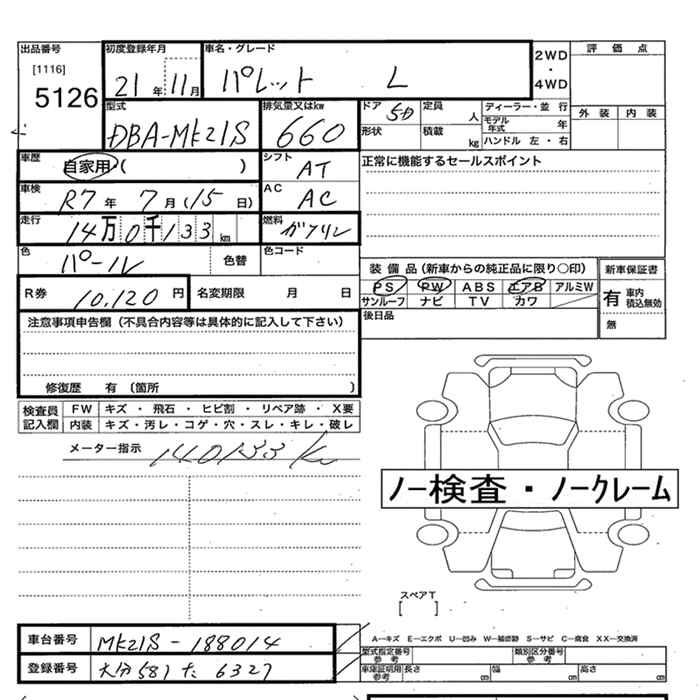 出品番号 初度登録年月 車名・グレード
[1116] 5126 21年 11月 パレット L 2WD・4WD
評価点
外装 内装
型式 排気量又はkw ドア 5D 定員 人 ディーラー・並行
DBA-MK21S 660 形状 積載 kg モデル年式 年
ハンドル 左・右
車歴 自家用( ) シフト AT 正常に機能するセールスポイント
車検 R7年 7月(15日) AC AC
走行 14万0千133km 燃料 ガソリン
色 パール 色替 色コード
装備品(新車からの純正品に限り○印) 新車保証書
R券 10,120円 名変期限 月 日
PS PW ABS エアB アルミW 有 車内 積込無効
サンルーフ ナビ TV カワ
無
注意事項申告欄(不具合内容等は具体的に記入して下さい) 後日品
修復歴 有(箇所 )
検査員記入欄 FW キズ・飛石・ヒビ割・リペア跡・X要
内装 キズ・汚レ・コゲ・穴・スレ・キレ・破レ
メーター指示 140133km
ノー検査・ノークレーム
スペアT
[ ]
車台番号 MK21S-188014
A―キズ E―エクボ U―凹み W―補修跡 S―サビ C―腐食 XX―交換済
型式指定番号 参考 類別区分番号 参考
登録番号 大分581た6327
車庫証明用 参考 長さ cm 幅 cm 高さ cm